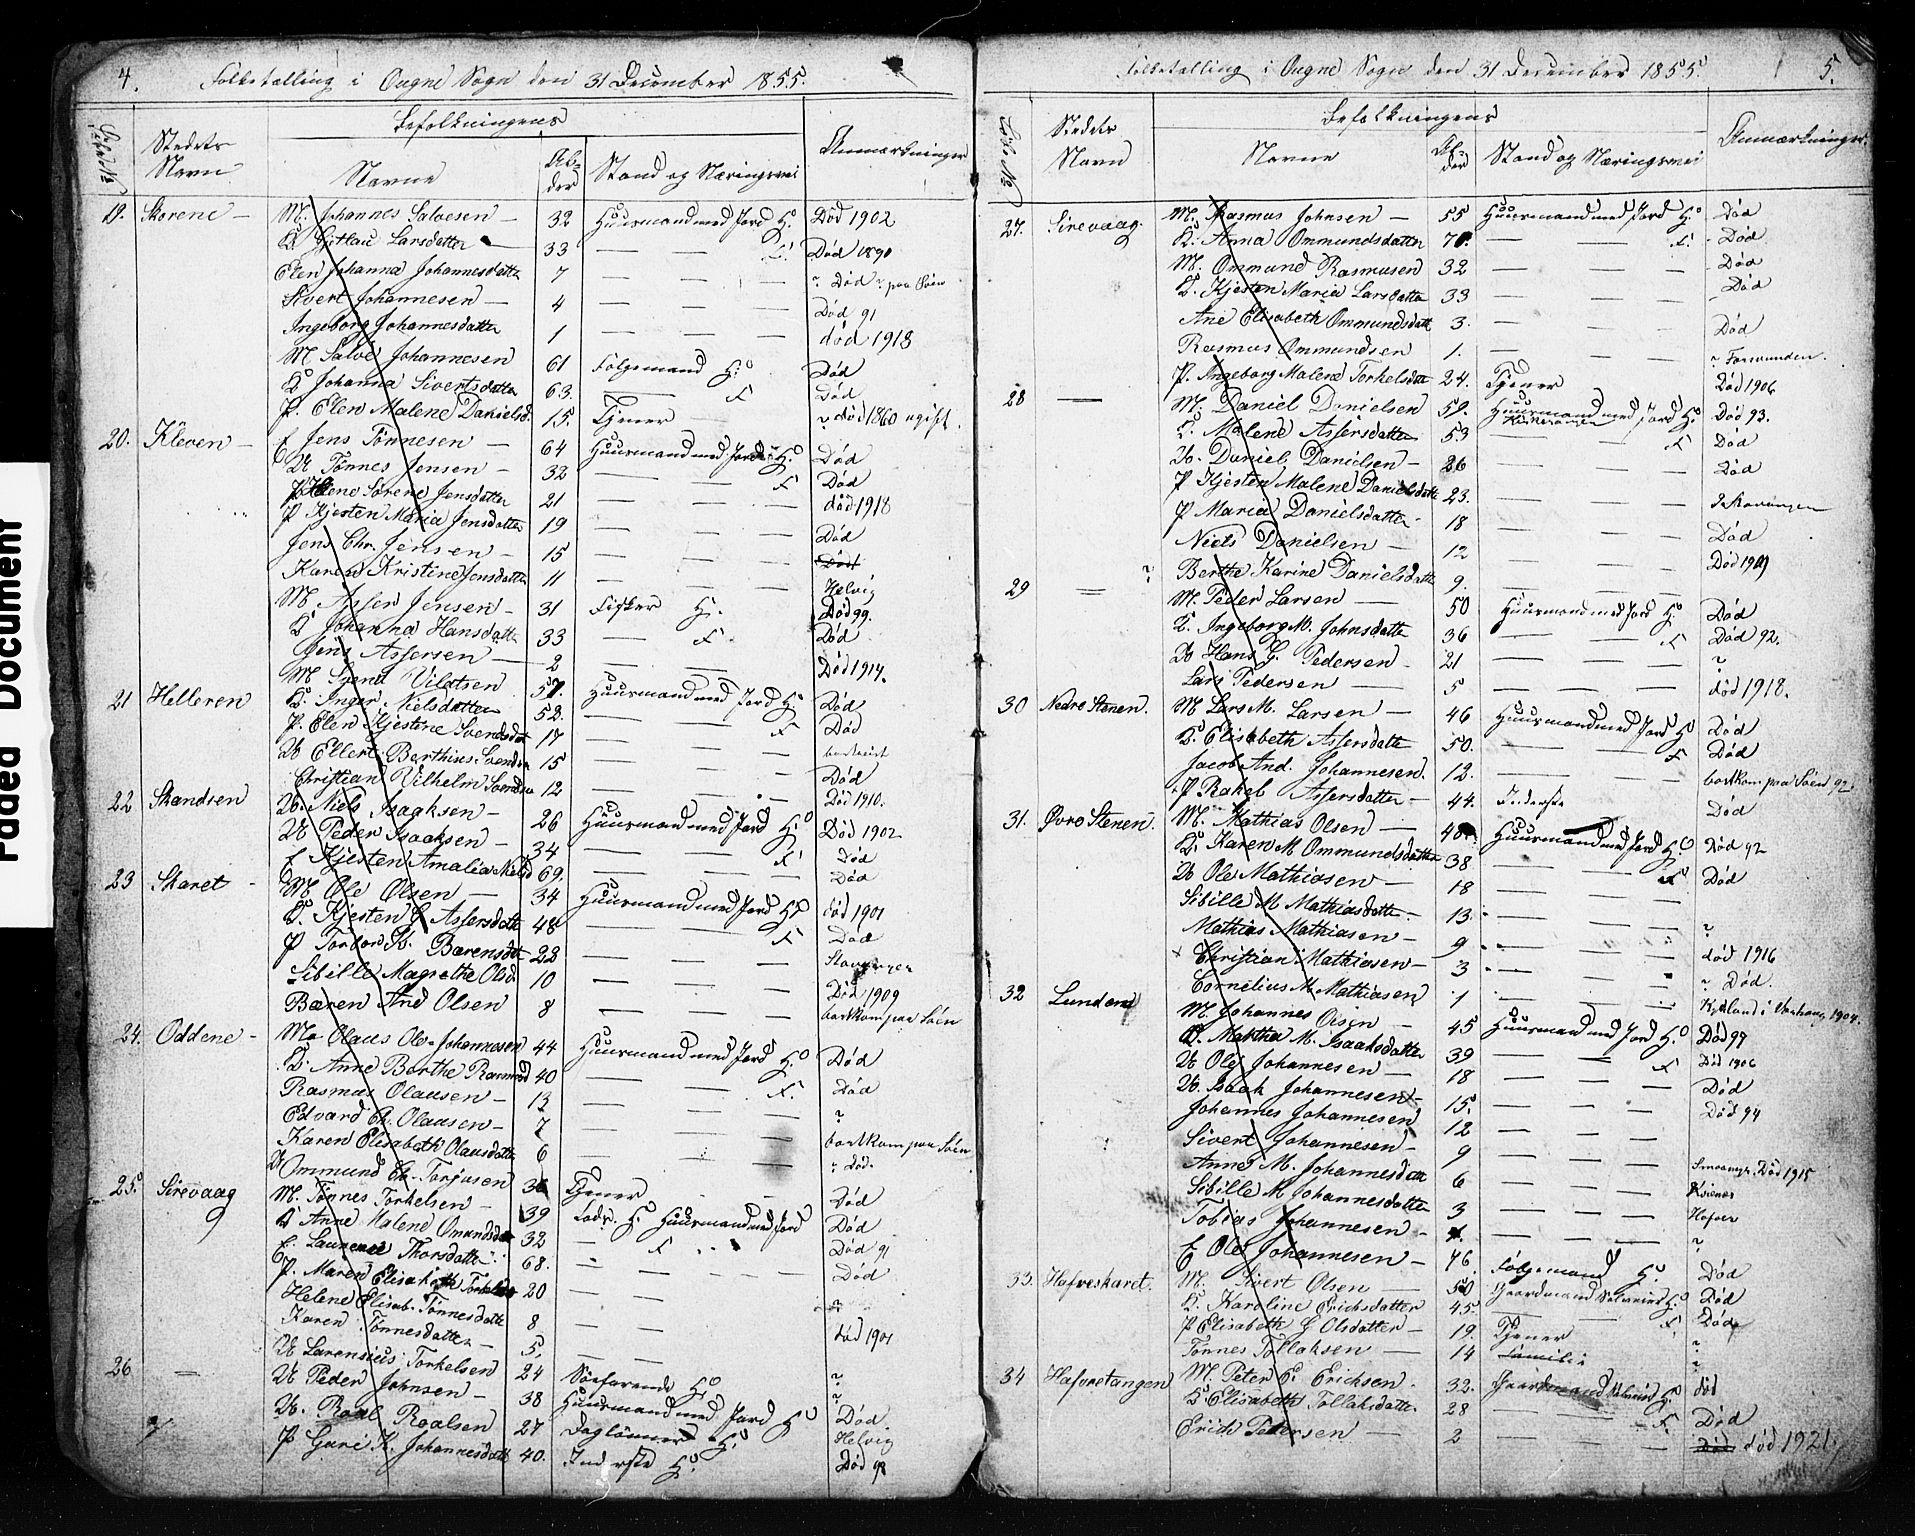 Faded Document
4.
Folketælling i Ougne Sogn den 31 December 1855.
Befolkningens
Stedets Navn
Navne
Alder
Stand og Næringsvei
Anmærkninger
19. Skorene — M. Johannes Salvesen — 32 Huusmand med Jord H. Død 1902
K Gitlau Larsdatter — 33 — — F. Død 1890
Elen Johanna Johannesdatter 7 — — ? Død ? paa Søen
Sivert Johannesen — 4 — — Død 91
Ingeborg Johannesdatter 1 — — død 1918
M Salve Johannesen 61 Folgemand H. Død
K Johanna Sivertsdatter 63. — F Død
P. Elen Malene Danielsd. 15. Tjener ? død 1860 ugift.
20. Kleven — E Jens Tønnesen — 64 Huusmand med Jord H. Død
U Tønnes Jensen — 32 — — F Død
P. Helene Sørene Jensdatter 21 — — død 1918
P Kjesten Maria Jensdatter 19 — —
Jens Chr. Jensen — 15 — — Død
Karen Kristine Jensdatter 11 — — Død
M Asser Jensen — 31 Fisker H. Helvig Død 99.
K Johanna Hansdatter 33 — F. Død
Jens Assersen — 2 — — Død 1914.
21 Helleren M Svend Vilatsen 57. Huusmand med Jord H. Død
K. Inger Nielsdatter 52. — F Død
P. Elen Kjestine Svendsdat 17 — — bortreist
U Ellert Berthius Svendsen 15 — — Død
Christian Vilhelm Svendsen 12 — — Død 1910.
22 Skandsen U. Niels Isaaksen — 26 Huusmand med Jord H. Død 1902
U Peder Isaaksen — 34 — F. Død
E Kjesten Amalia Nielsd 69. — — Død
23 Skaret — M Ole Olsen — 34 Huusmand med Jord H. død 1901
K. Kjesten G Assersdatte 48 — F Død
P Torbor K. Bærensdat 22 — — Stavanger
Sibille Magrethe Olsd. 10 — — Død 1909
Bæren And Olsen 8 — — bortkom paa Søen
24. Oddene — M. Olaus Ols. Johannesen 44 Huusmand med Jord H. Død
K. Anne Berthe Rasmusd 40 — F. Død
Rasmus Olausen — 13 — — ?
Edvard Ch. Olausen — 7 — — bortkom paa Søen
Karen Elisabeth Olausdatte 6 — — ? død.
U Ommund Ch. Torjusen 36 Tjener Død
25. Sirevaag M. Tønnes Torkelsen — 39 Lods. H. Huusmand med Jord Død
K Anne Malene Omundsdat 32 — F Død 91
E. Laurence Thorsdatter 68. — — Død
P. Maren Elisabeth Torkelsd 20 — — ?
Helene Elisab. Tønnesdatte 8 — —
Karen Tønnesdatter — 5. — — død 1901
26 — U Larensius Torkelsen 24 Søefarende H. ?
U Peder Johnsen — 38 Huusmand med Jord H. ? Død
U. Roal Roalsen 27 Daglønner H. Helvig
P Guri K. Johannesdatte 40. Inderste H. Død 98
Folketælling i Ougne Sogn den 31 December 1855.
5.
Befolkningens
Stedets Navn
Navne
Alder
Stand og Næringsvei
Anmærkninger.
27. Sirevaag. M. Rasmus Johnsen — 55 Huusmand med Jord H. Død
K. Anna Ommundsdatter 70. — — F. Død
M. Ommund Rasmusen 32 — — Død
K. Kjesten Maria Larsdatter 33 — — Død
Ane Elisabeth Ommundsdatte 3. — —
Rasmus Ommundsen 1. — — Død
P. Ingeborg Malene Torkelsdatte 24. Tjener ? Forsvunden.
28 — M. Daniel Danielsen 59. Huusmand med Jord H. Kirkesanger Død 1906 Død 93.
K. Malene Assersdatter 53 — F Død
U. Daniel Danielsen — 26 — — Død
P Kjesten Malene Danielsdatte 23. — —
P Maria Danielsdatter 18 — — I Stavanger
Niels Danielsen — 12 — — Død
? Berthe Karine Danielsdatte 9. — — Død 1909
29 = M. Peder Larsen — 50 Huusmand med Jord H. Død
K. Ingeborg M. Johnsdatte 36 — F Død 92.
U Hans G. Pedersen — 21 — — ?
Lars Pedersen — 5 — — død 1918.
30 Nedre Stenen. M Lars M. Larsen — 46 Huusmand med Jord H Død
K. Elisabeth Assersdatte 50. — F Død
Jacob And. Johannesen. 12. — — bortkom paa Søen 92.
P Rakel Assersdatter — 44. Inderste Død
31. Øvre Stenen. M. Mathias Olsen — 40 Huusmand med Jord H. Død 92
K. Karen M Ommundsdatter 38 — F Død
U Ole Mathiasen — 18 — —
Sibille M Mathiasdatte — 13. — — ?
Mathias Mathiasen — 9 — — død 1916
+ Christian Mathiasen — 3 — — ? Død.
Cornelius M Mathiasen 1 — — Kydland i Varhaug 1904.
32 Lunden M. Johannes Olsen — 45 Huusmand med Jord H. Død 97
K. Martha M. Isaaksdatter 39 — F Død 1906
U Ole Johannesen — 18 — — Død
U. Isaak Johannesen — 15. — — Død 94
Johannes Johannesen 12 — —
Sivert Johannesen — 9 — —
Anne M. Johannesdatte 6 — — Død 1915
Sibille M Johannesdatter 3 — —
Tobias Johannesen — 1. — — ?
E Ole Johannesen — 76. Folgemand H. Død
33. Hafreskaret. M. Sivert Olsen — 50 Gaardmand Selveier H. Død
K. Karoline Erichsdatter 45. — F. Død
P Elisabeth G Olsdatter — 19. Tjener ?
Tønnes Tollaksen — 14 Familie ?
34 Hafretangen M. Peter E. Erichsen. 32. Gaardmand Selveier H. død
K. Elisabeth Tollaksdatte. 28 — F. Død
Erich Petersen — 2 — — Død død 1921.